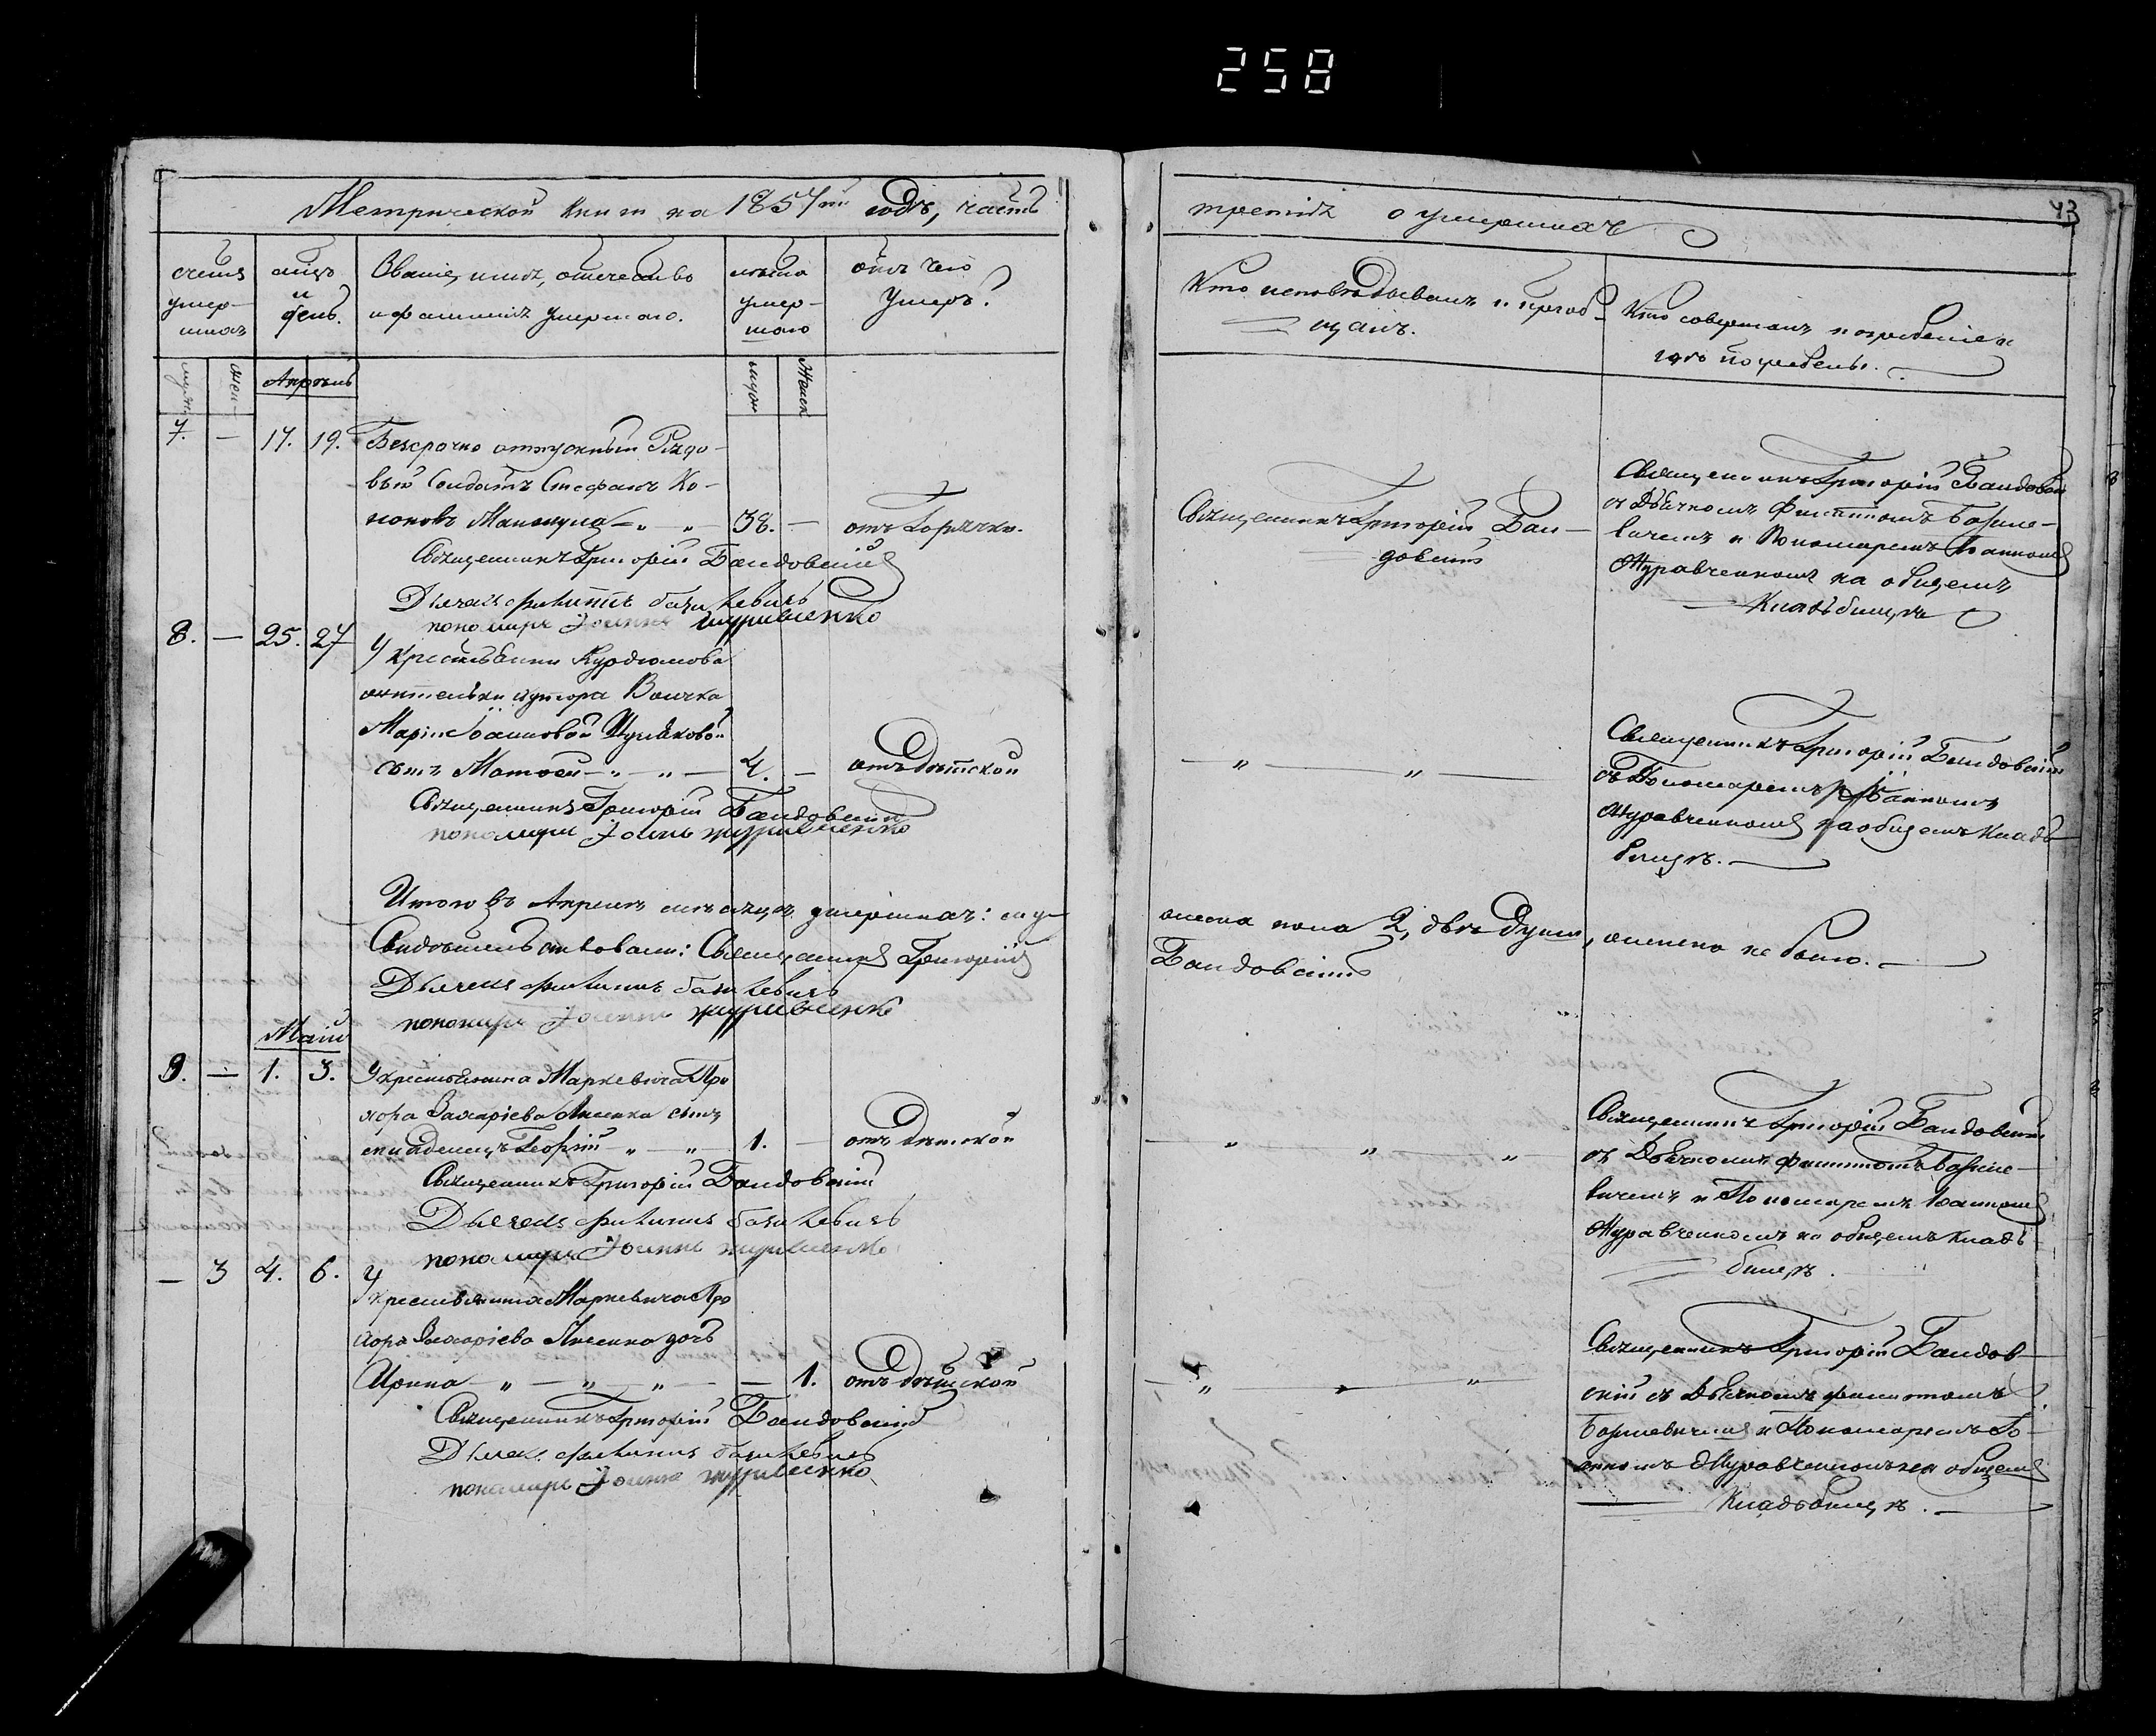 258
Метрической книги на 1857й годъ, часть
третія о умершихъ
43
счетъ умершихъ
мѣсяцъ и день.
Званіе, имя, отечество и фамилія умершаго.
лѣта умершаго
отъ чего умеръ?
Кто исповѣдывалъ и пріобщалъ.
Кто совершалъ погребеніе и гдѣ погребены.
муж.
жен.
Апрѣль
муж.
Женск
7. — 17. 19. Безсрочно отпускный Рядо-
вый Солдатъ Стефанъ Ко-
ноновъ — „ — „ — 38. — отъ Горячки.
Священникъ Григорій Бандовскій
Дьячекъ Филиппъ Базилевичъ
пономарь Іоаннъ Журавленко
Священникъ Григорій Бан-
довскій
Священникъ Григорій Бандовскій
съ Дьячкомъ Филиппомъ Базиле-
вичемъ и Пономаремъ Іоанномъ
Журавченкомъ на общемъ
Кладбищѣ
8. — 25. 27 У крестьянки Курдюмова
жительки хутора
Маріи Іоанновой
сынъ Матѳей — „ — „ — 4. — отъ дѣтской
Священникъ Григорій Бандовскій
пономарь Іоаннъ Журавленко
— „ — „ —
Священникъ Григорій Бандовскій
съ Пономаремъ Іоанномъ
Журавченкомъ на общемъ кладб-
бищѣ. —
Итого въ Апрѣлѣ мѣсяцѣ умершихъ: муж-
ческа пола 2, двѣ души, женска не было. —
Свидѣтельствовали: Священникъ Григорій
Бандовскій
Дьячекъ Филиппъ Базилевичъ
пономарь Іоаннъ Журавленко
Маій
9. — 1. 3. У крестьянина Маркевича Про
хора Захаріева Лисенка сынъ
младенецъ Георгій — „ — „ — 1. — отъ дѣтской
Священникъ Григорій Бандовскій
Дьячекъ Филиппъ Базилевичъ
пономарь Іоаннъ Журавленко
— „ — „ — „ —
Священникъ Григорій Бандовскій
съ Дьячкомъ Филиппомъ Базиле-
вичемъ и Пономаремъ Іоанномъ
Журавченкомъ на общемъ кладб-
бищѣ.
— 3 4. 6. У
крестьянина Маркевича Про
хора Захаріева Лисенка дочь
Ирина — „ — „ — „ — — 1. отъ дѣтской
Священникъ Григорій Бандовскій
Дьячекъ Филиппъ Базилевичъ
пономарь Іоаннъ Журавленко
— „ — „ — „ —
Священникъ Григорій Бандов-
скій съ Дьячкомъ Филиппомъ
Базилевичемъ и Пономаремъ Іо-
анномъ Журавченкомъ на общемъ
Кладбищѣ. —